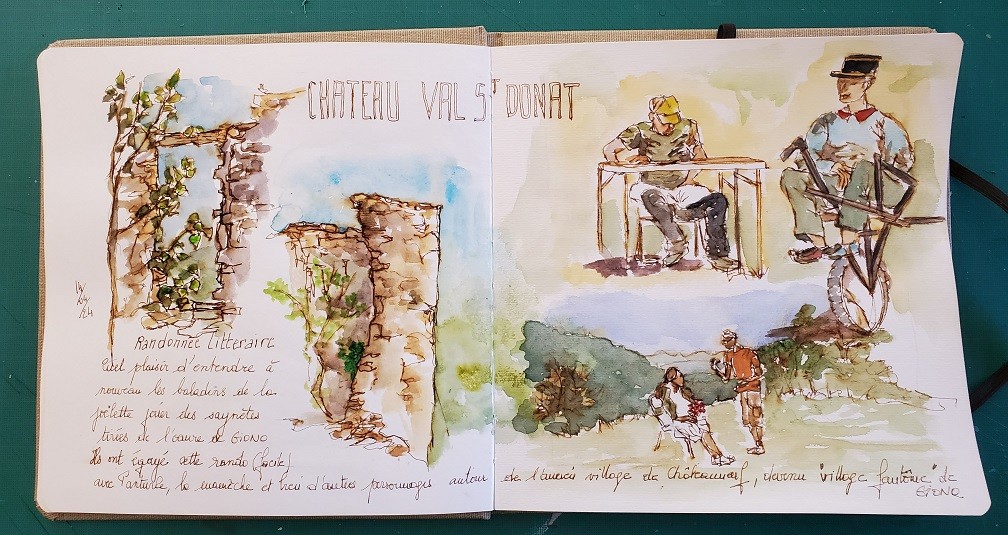 CHATEAU VAL ST DONAT
Randonnée Littéraire
Quel plaisir d'entendre à
nouveau les baladins de la
joëlette jouer des saynètes
tirées de l'œuvre de GIONO
Ils ont égayé cette rando (facile)
avec Panturle, la mamèche et bien d'autres personnages autour de l'ancien village de Châteauneuf, devenu "village fantôme" de
GIONO